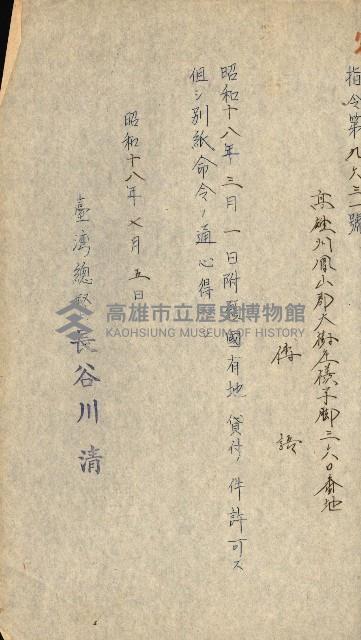 指令第九六三一號
高雄州鳳山郡大樹庄檨子脚三六〇番地
傅 
昭和十八年三月一日附願國有地貸付ノ件許可ス
但シ別紙命令ノ通心得
昭和十八年七月五日
臺灣總督長谷川清
高雄市立歷史博物館
KAOHSIUNG MUSEUM OF HISTORY